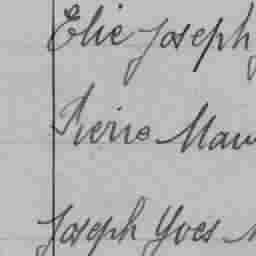 Elie Joseph
Pierre Mau
Joseph Yves